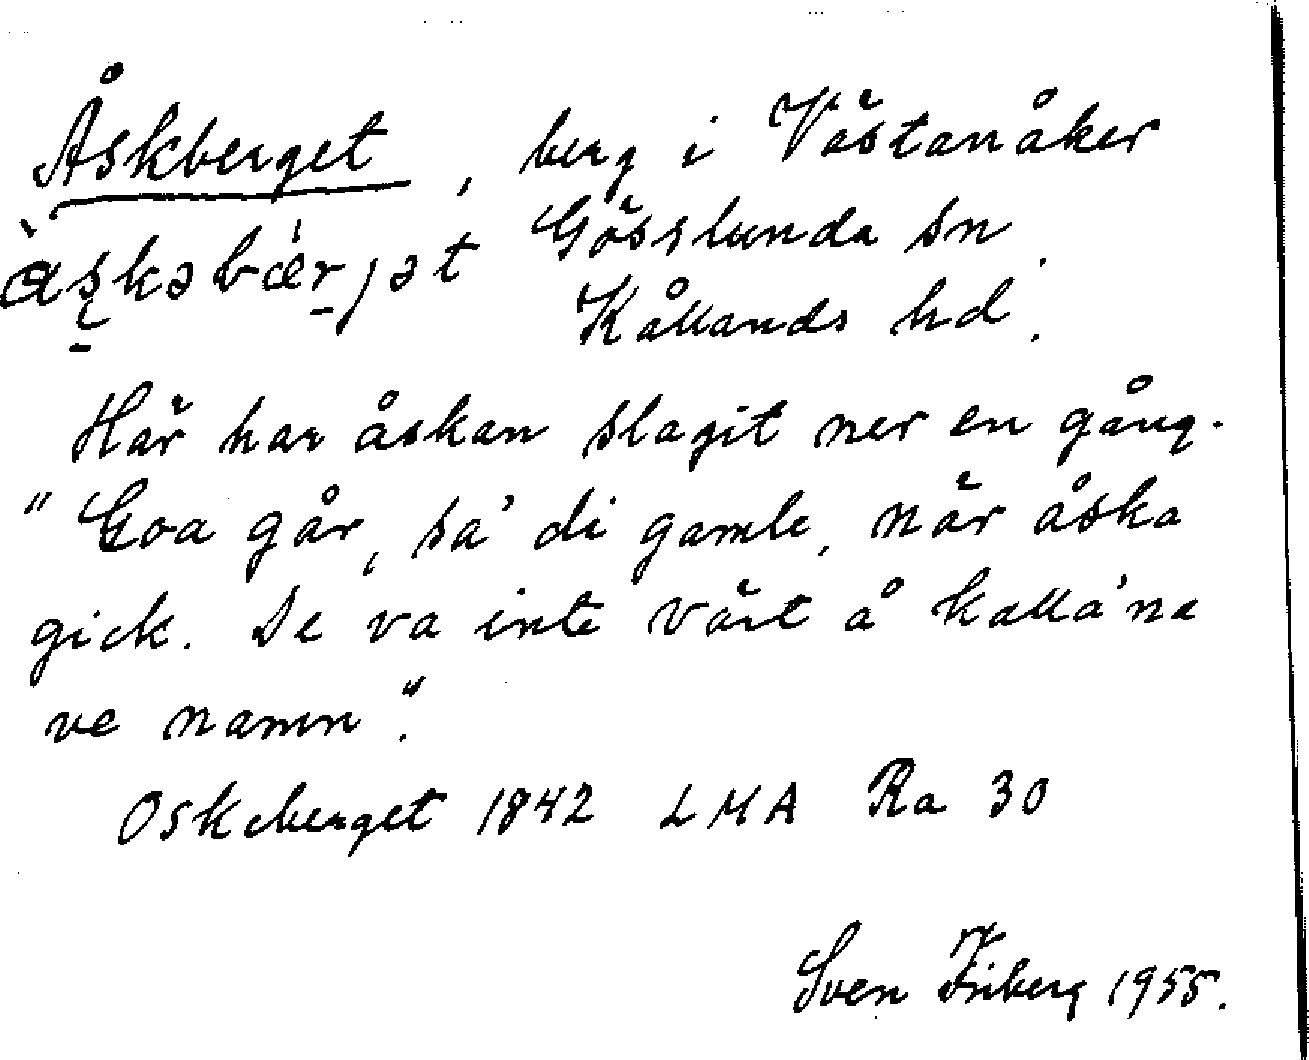 Åskberget, berg i Västanåker
Gösslunda sn.
Kållands hd.
Här har åskan slagit ner en gång.
"Goa går, sa' di gamle, när åska
gick. De va inte värt å kalla'na
ve namn".
Oskeberget 1842 LMA Ra 30
Sven Friberg 1955.